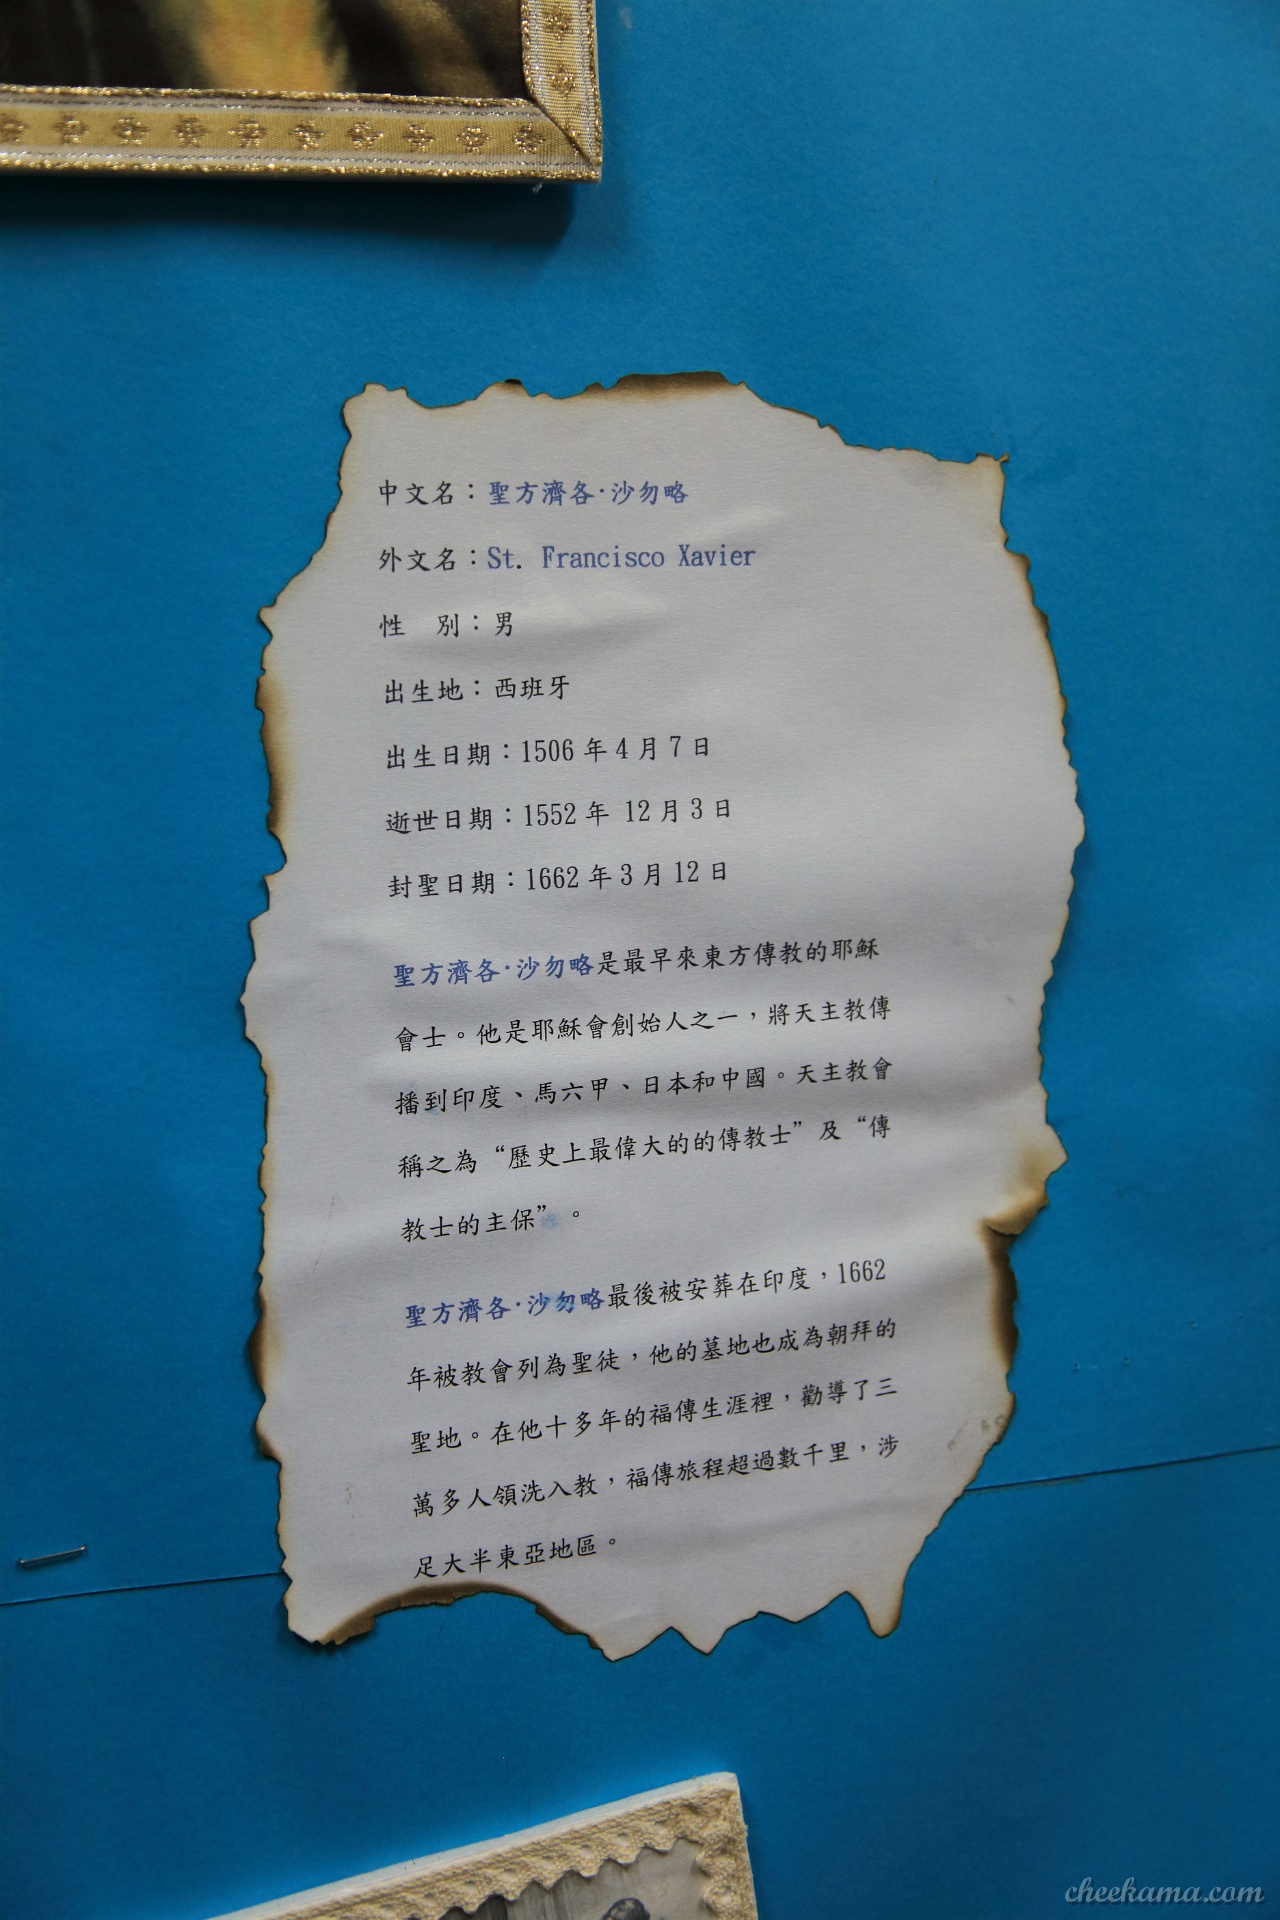 中文名：聖方濟各·沙勿略
外文名：St. Francisco Xavier
性　別：男
出生地：西班牙
出生日期：1506 年 4 月 7 日
逝世日期：1552 年 12 月 3 日
封聖日期：1662 年 3 月 12 日
聖方濟各·沙勿略是最早來東方傳教的耶穌
會士。他是耶穌會創始人之一，將天主教傳
播到印度、馬六甲、日本和中國。天主教會
稱之為“歷史上最偉大的的傳教士”及“傳
教士的主保”。
聖方濟各·沙勿略最後被安葬在印度，1662
年被教會列為聖徒，他的墓地也成為朝拜的
聖地。在他十多年的福傳生涯裡，勸導了三
萬多人領洗入教，福傳旅程超過數千里，涉
足大半東亞地區。
cheekama.com